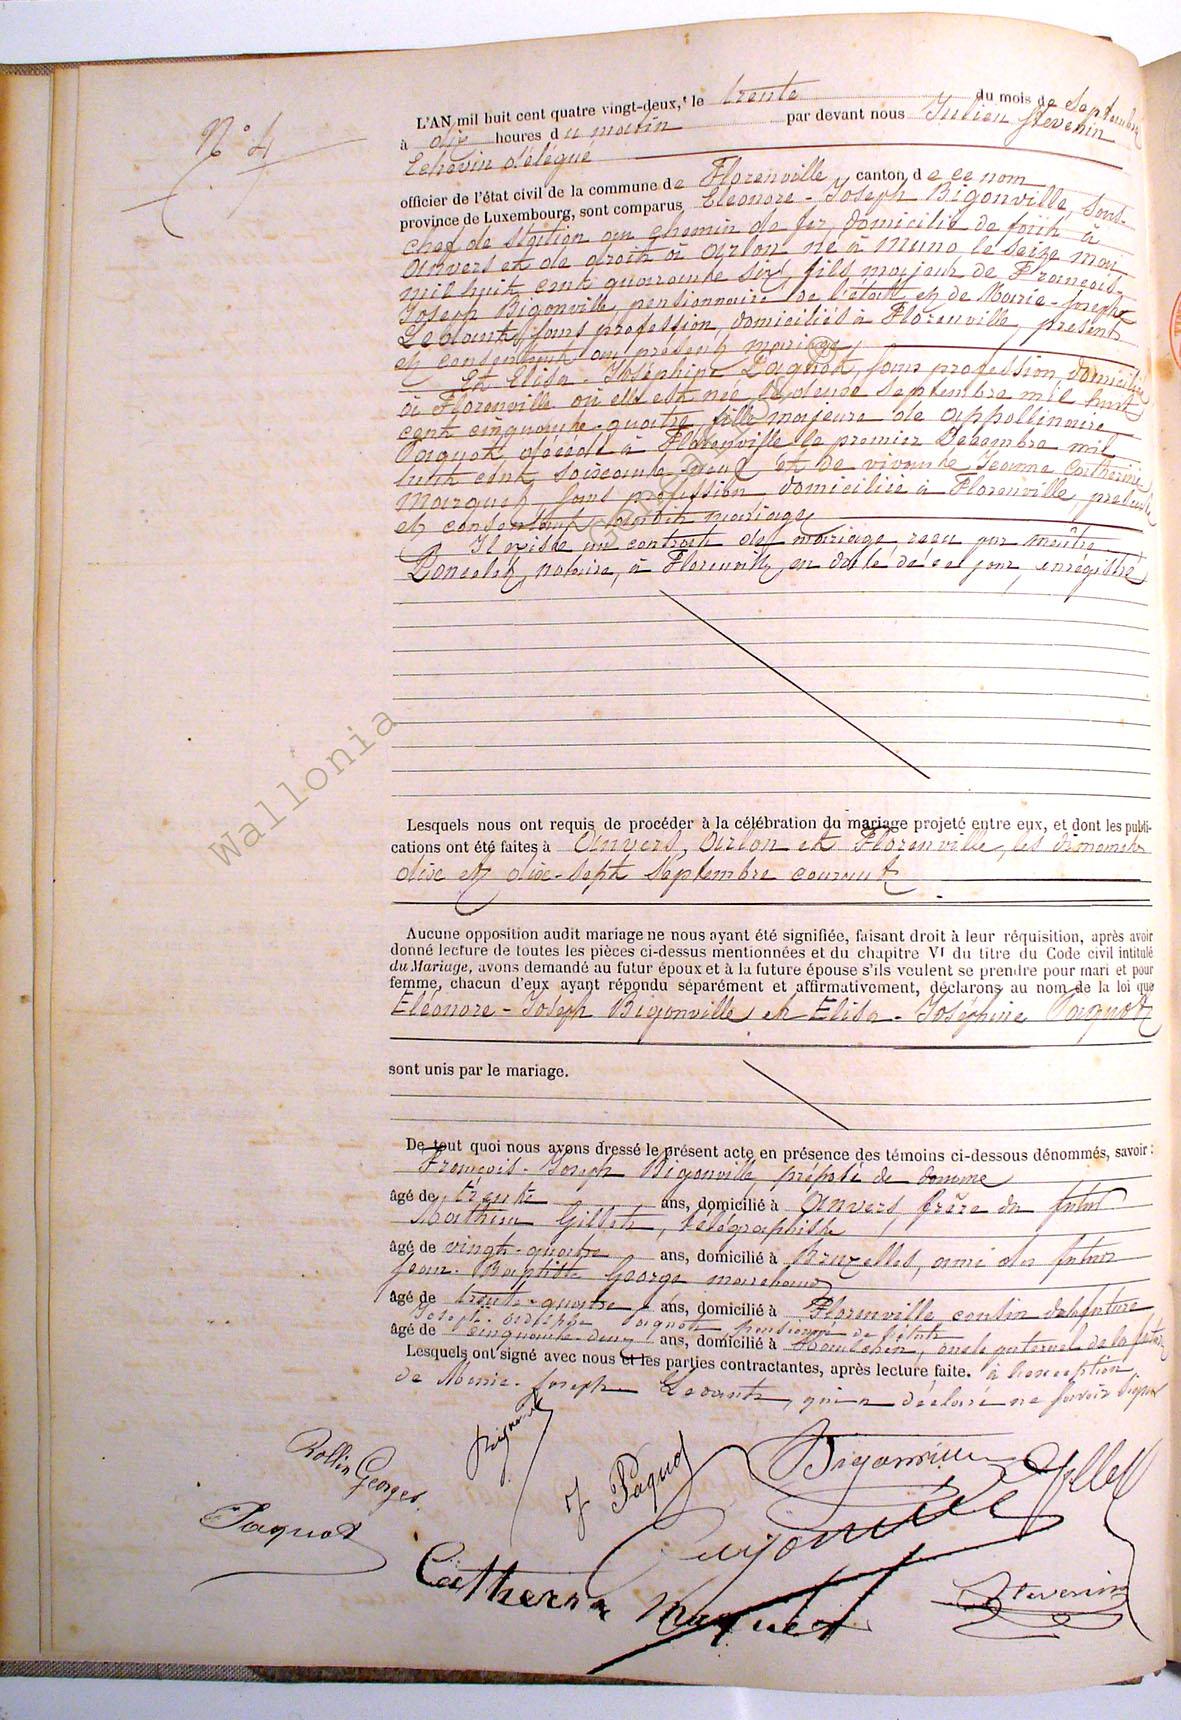 N° 4
L'AN mil huit cent quatre vingt-deux, le trente du mois de Septembre
à dix heures du matin par devant nous Julien Stevenin
Echevin délégué
officier de l'état civil de la commune de Florenville, canton de ce nom
province de Luxembourg, sont comparus Eléonore-Joseph Bigonville, sous-
chef de station au chemin de fer, domicilié de fait à
Anvers et de droit à Arlon né à Muno le seize mai
mil huit cent quarante six, fils majeur de François-
Joseph Bigonville, pensionnaire de l'état et de Marie-Joseph
sans profession, domiciliés à Florenville, présents
et consentant au présent mariage,
Et Elisa-Joséphine Paquot, sans profession, domiciliée
à Florenville où elle est née le douze Septembre mil huit
cent cinquante-quatre, fille majeure de Appollinaire
Paquot, décédé à Florenville le premier Décembre mil
huit cent soixante neuf, et de vivante Jeanne Catherine
Marquet, sans profession domiciliée à Florenville, présente
et consentant audit mariage,
Il existe un contrat de mariage reçu par maître
Poncelet, notaire, à Florenville, en date de ce jour, enrégistré
Lesquels nous ont requis de procéder à la célébration du mariage projeté entre eux, et dont les publi-
cations ont été faites à Anvers, Arlon et Florenville, les dimanches
dix et dix-sept Septembre courant
Aucune opposition audit mariage ne nous ayant été signifiée, faisant droit à leur réquisition, après avoir
donné lecture de toutes les pièces ci-dessus mentionnées et du chapitre VI du titre du Code civil intitulé
du Mariage, avons demandé au futur époux et à la future épouse s'ils veulent se prendre pour mari et pour
femme, chacun d'eux ayant répondu séparément et affirmativement, déclarons au nom de la loi que
Eléonore-Joseph Bigonville et Elisa-Joséphine Paquot
sont unis par le mariage.
De tout quoi nous avons dressé le présent acte en présence des témoins ci-dessous dénommés, savoir :
François-Joseph Bigonville, préposé de douane
âgé de trente ans, domicilié à Anvers, frère du futur
Mathieu Gillet, télégraphiste
âgé de vingt-quatre ans, domicilié à Bruxelles, ami du futur
Jean-Baptiste George marchand
âgé de trente-quatre ans, domicilié à Florenville, cousin de la future
Joseph Paquot, pensionné de l'état
âgé de cinquante-deux ans, domicilié à oncle paternel de la future
Lesquels ont signé avec nous et les parties contractantes, après lecture faite. à l'exception
de Marie-Joseph qui a déclaré ne savoir signer
Rollin Georges.
Paquot
J Paquot
Bigonville
Gillet
Bigonville
Catherine Marquet
Stevenin
Wallonia